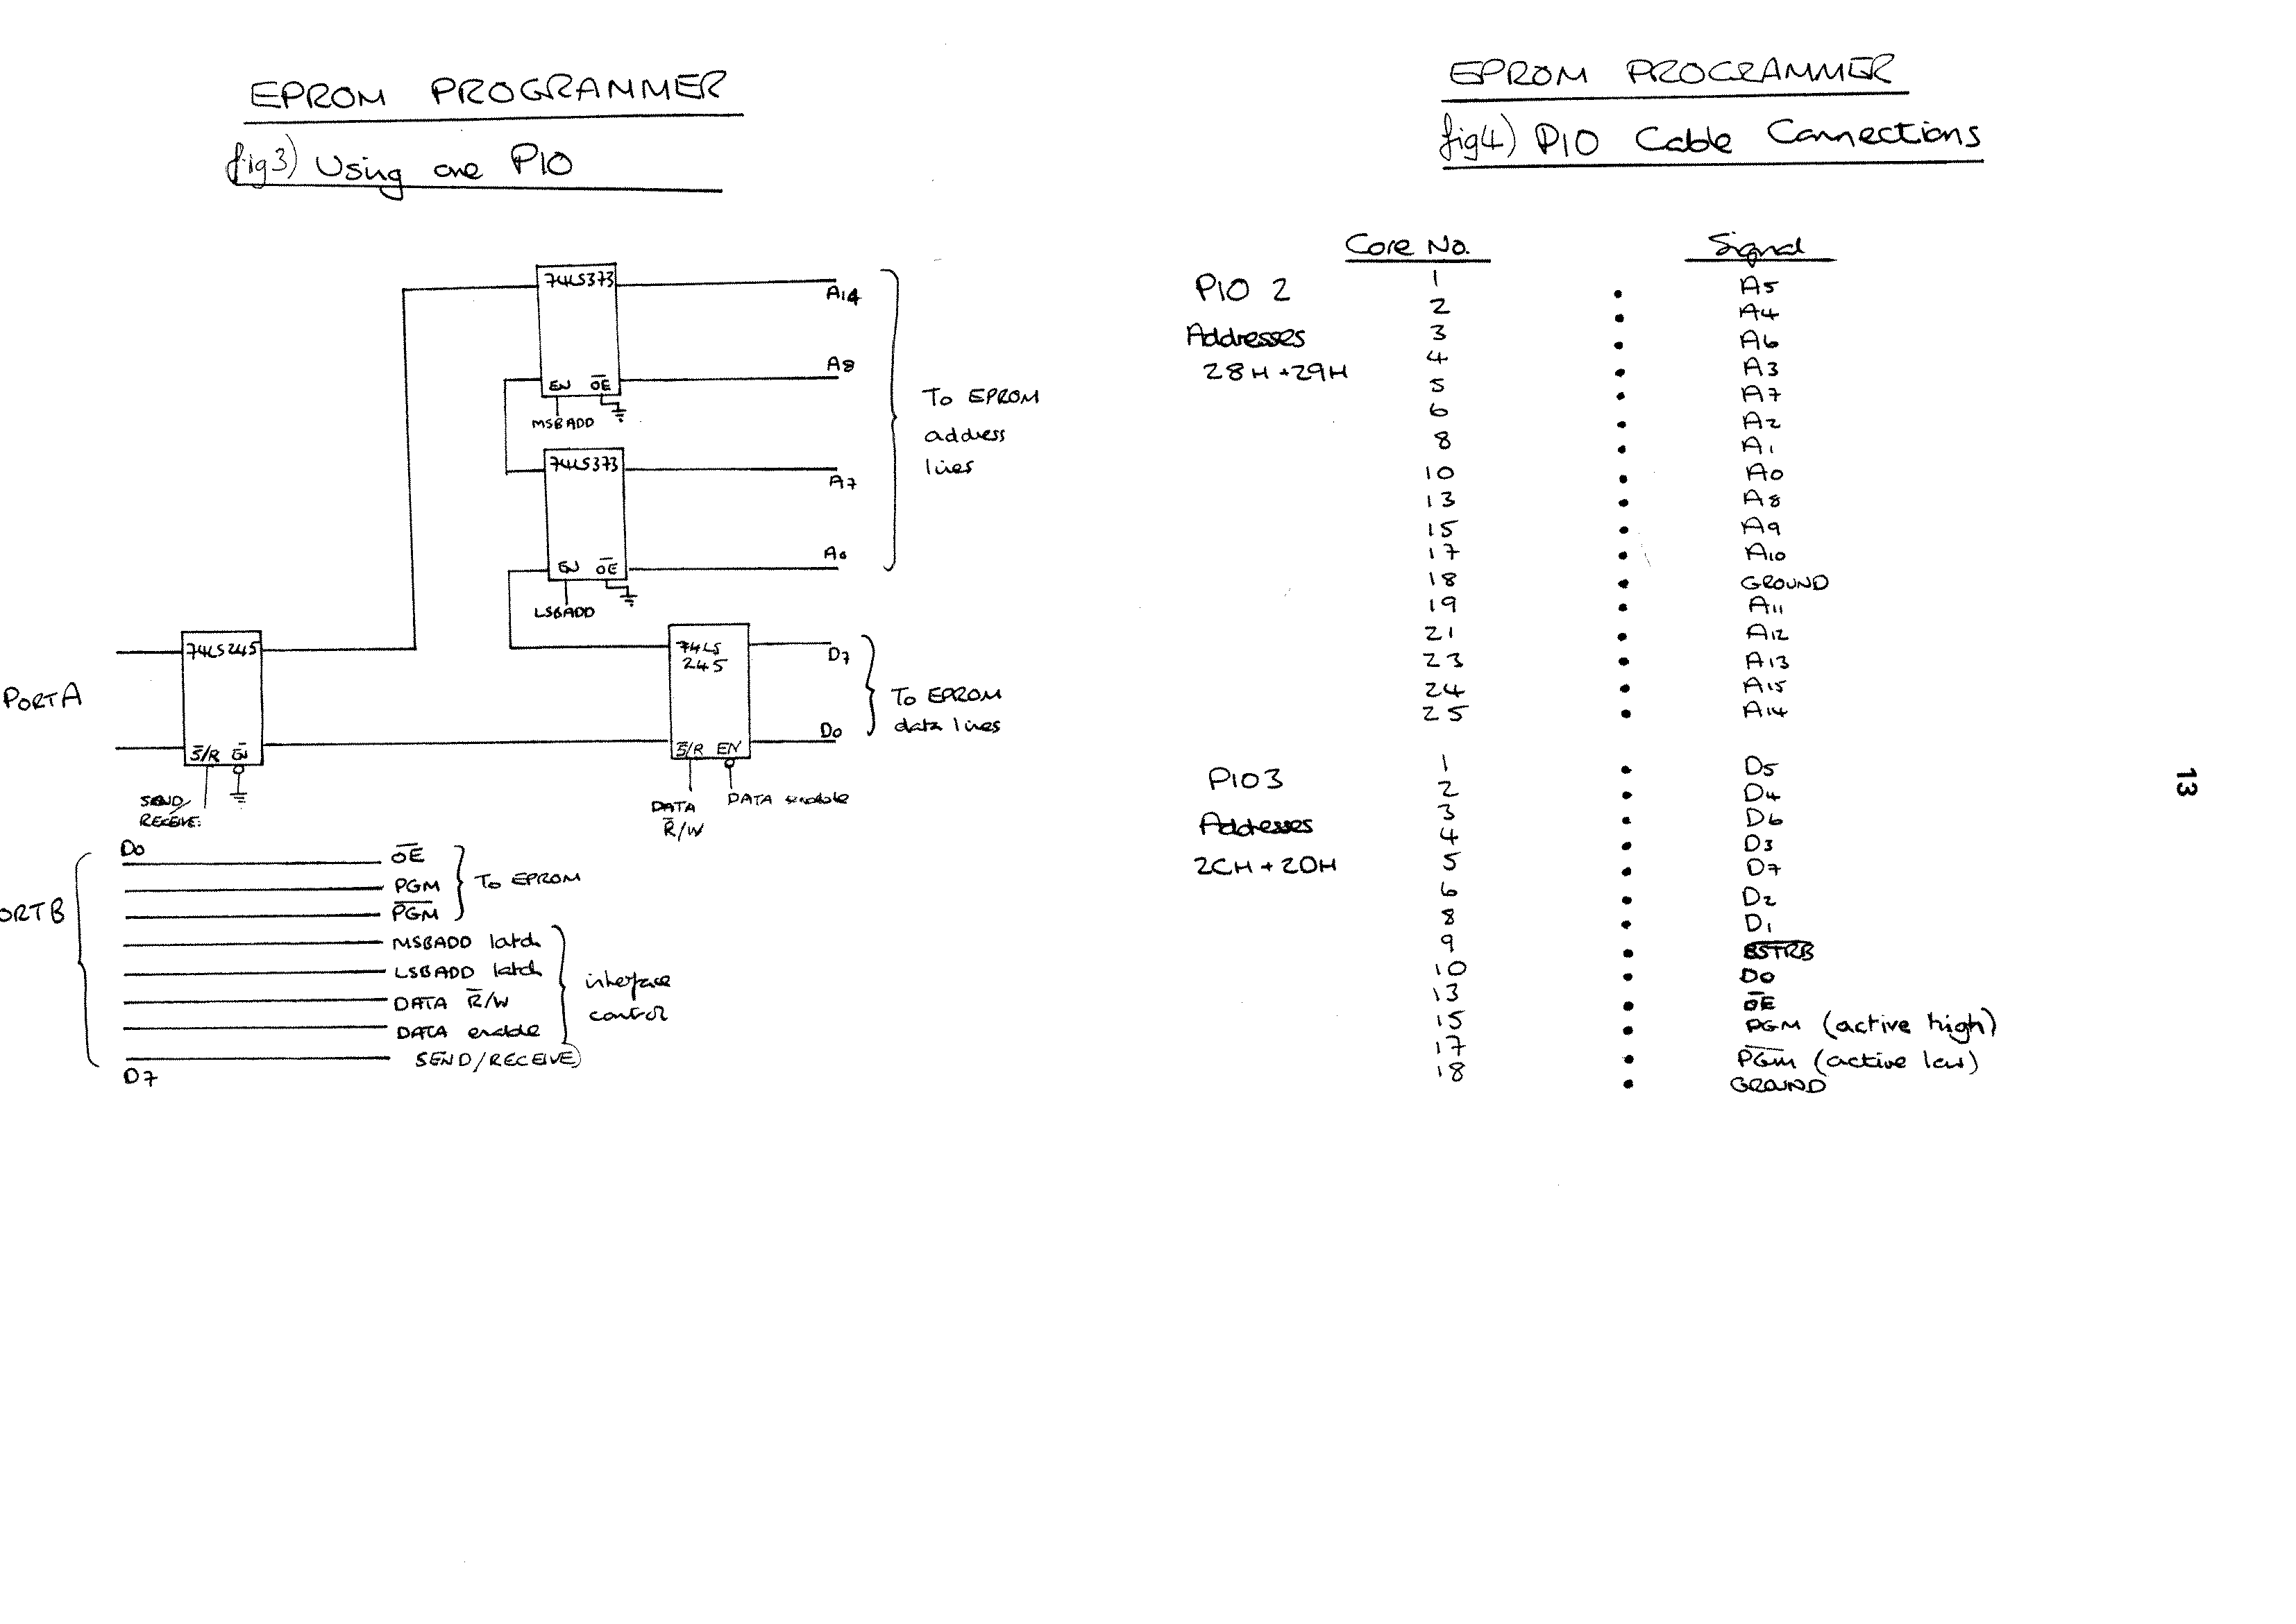 EPROM PROGRAMMER
fig3) Using one PIO
74LS373
A14
A8
EN O̅E̅
MSBADD
74LS373
A7
A0
EN O̅E̅
LSBADD
To EPROM
address
lines
PORT A
74LS245
S̅/R E̅N̅
SEND/
RECEIVE
74LS
245
D7
D0
S̅/R EN
DATA
R̅/W
DATA enable
To EPROM
data lines
ORT B
D0
O̅E̅
PGM
P̅G̅M̅
To EPROM
MSBADD latch
LSBADD latch
DATA R̅/W
DATA enable
SEND/RECEIVE
interface
control
D7
EPROM PROGRAMMER
fig4) PIO Cable Connections
Core No. Signal
PIO 2
Addresses
28H + 29H
1 • A5
2 • A4
3 • A6
4 • A3
5 • A7
6 • A2
8 • A1
10 • A0
13 • A8
15 • A9
17 • A10
18 • GROUND
19 • A11
21 • A12
23 • A13
24 • A15
25 • A14
PIO3
Addresses
2CH + 2DH
1 • D5
2 • D4
3 • D6
4 • D3
5 • D7
6 • D2
8 • D1
9 • B̅S̅T̅R̅B̅
10 • D0
13 • O̅E̅
15 • PGM (active high)
17 • P̅G̅M̅ (active low)
18 • GROUND
13